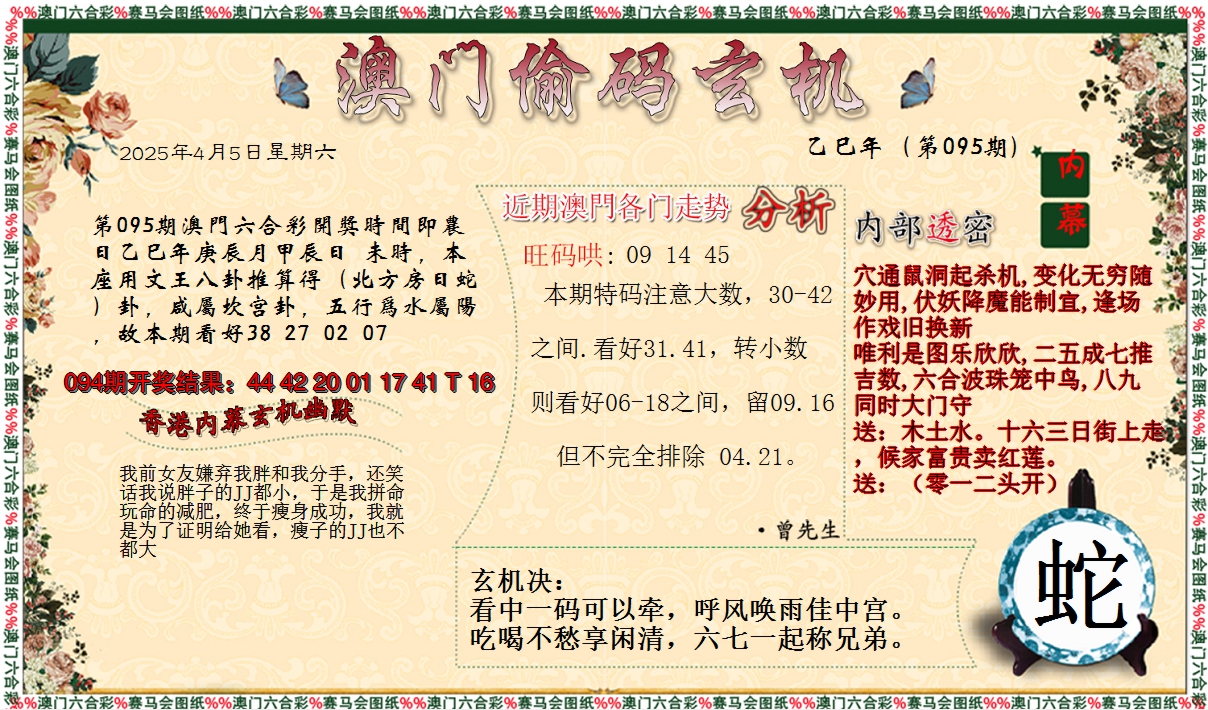 %%澳门六合彩%赛马会图纸%%澳门六合彩%赛马会图纸%%澳门六合彩%赛马会图纸%%澳门六合彩%赛马会图纸%%澳门六合彩%赛马会图纸%%澳门六合彩%赛马会图纸%%
澳门偷码玄机
2025年4月5日星期六
乙巳年（第095期）
内幕
第095期澳門六合彩開獎時間即農
日乙巳年庚辰月甲辰日 未時，本
座用文王八卦推算得（北方房日蛇
）卦，咸屬坎宫卦，五行爲水屬陽
，故本期看好38 27 02 07
094期开奖结果：44 42 20 01 17 41 T 16
香港内幕玄机幽默
我前女友嫌弃我胖和我分手，还笑
话我说胖子的JJ都小，于是我拼命
玩命的减肥，终于瘦身成功，我就
是为了证明给她看，瘦子的JJ也不
都大
近期澳門各门走势 分析
旺码哄: 09 14 45
本期特码注意大数，30-42
之间.看好31.41，转小数
则看好06-18之间，留09.16
但不完全排除 04.21。
·曾先生
内部透密
穴通鼠洞起杀机,变化无穷随
妙用,伏妖降魔能制宜,逢场
作戏旧换新
唯利是图乐欣欣,二五成七推
吉数,六合波珠笼中鸟,八九
同时大门守
送：木土水。十六三日街上走
，候家富贵卖红莲。
送：（零一二头开）
玄机决：
看中一码可以牵，呼风唤雨佳中宫。
吃喝不愁享闲清，六七一起称兄弟。
蛇
%%澳门六合彩%赛马会图纸%%澳门六合彩%赛马会图纸%%澳门六合彩%赛马会图纸%%澳门六合彩%赛马会图纸%%澳门六合彩%赛马会图纸%%澳门六合彩%赛马会图纸%%